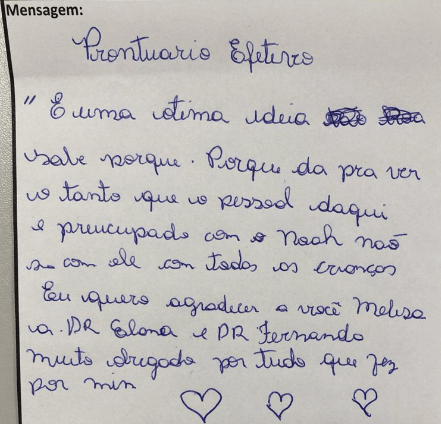 Mensagem:
Prontuario Efetivo
" É uma otima ideia
sabe porque. Porque da pra ver
o tanto que o pessoal daqui
e preucupado com o Noah não
so com ele com todos as crianças
Eu quero agradecer a você Melisa
a. DR Elona e DR Fernando
muito obrigado por tudo que fez
por min